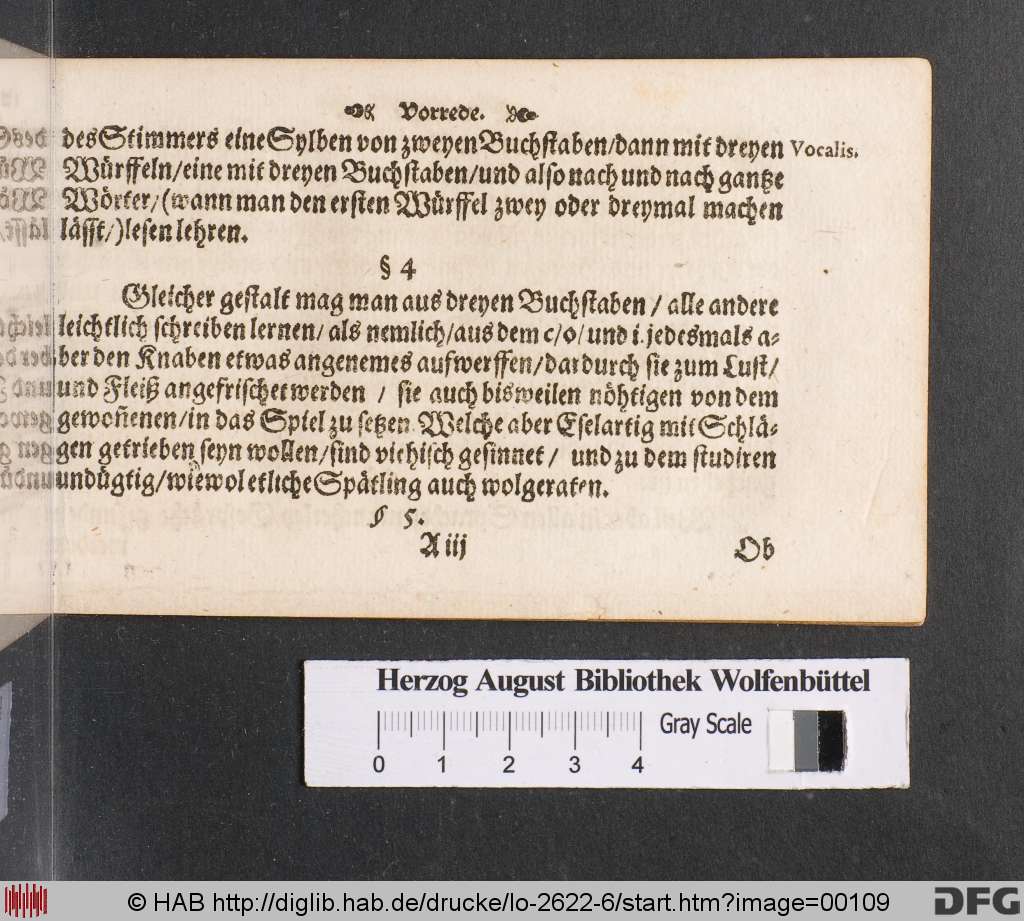 Vorrede.
des Stimmers eine Sylben von zweyen Buchstaben/dann mit dreyen Vocalis.
Würffeln/eine mit dreyen Buchstaben/und also nach und nach gantze
Wörter/(wann man den ersten Würffel zwey oder dreymal machen
lässt/)lesen lehren.
§ 4
Gleicher gestalt mag man aus dreyen Buchstaben / alle andere
leichtlich schreiben lernen/ als nemlich/aus dem c/o/ und i. jedesmals a-
ber den Knaben etwas angenemes aufwerffen/dardurch sie zum Lust/
und Fleiß angefrischet werden / sie auch bisweilen nöhtigen von dem
gewoñenen/in das Spiel zu setzen. Welche aber Eselartig mit Schlä-
gen getrieben seyn wollen/sind viehisch gesinnet / und zu dem studiren
undügtig/wiewol etliche Spätling auch wolgeraten.
§ 5.
A iij Ob
Herzog August Bibliothek Wolfenbüttel
Gray Scale
0 1 2 3 4
© HAB http://diglib.hab.de/drucke/lo-2622-6/start.htm?image=00109
DFG